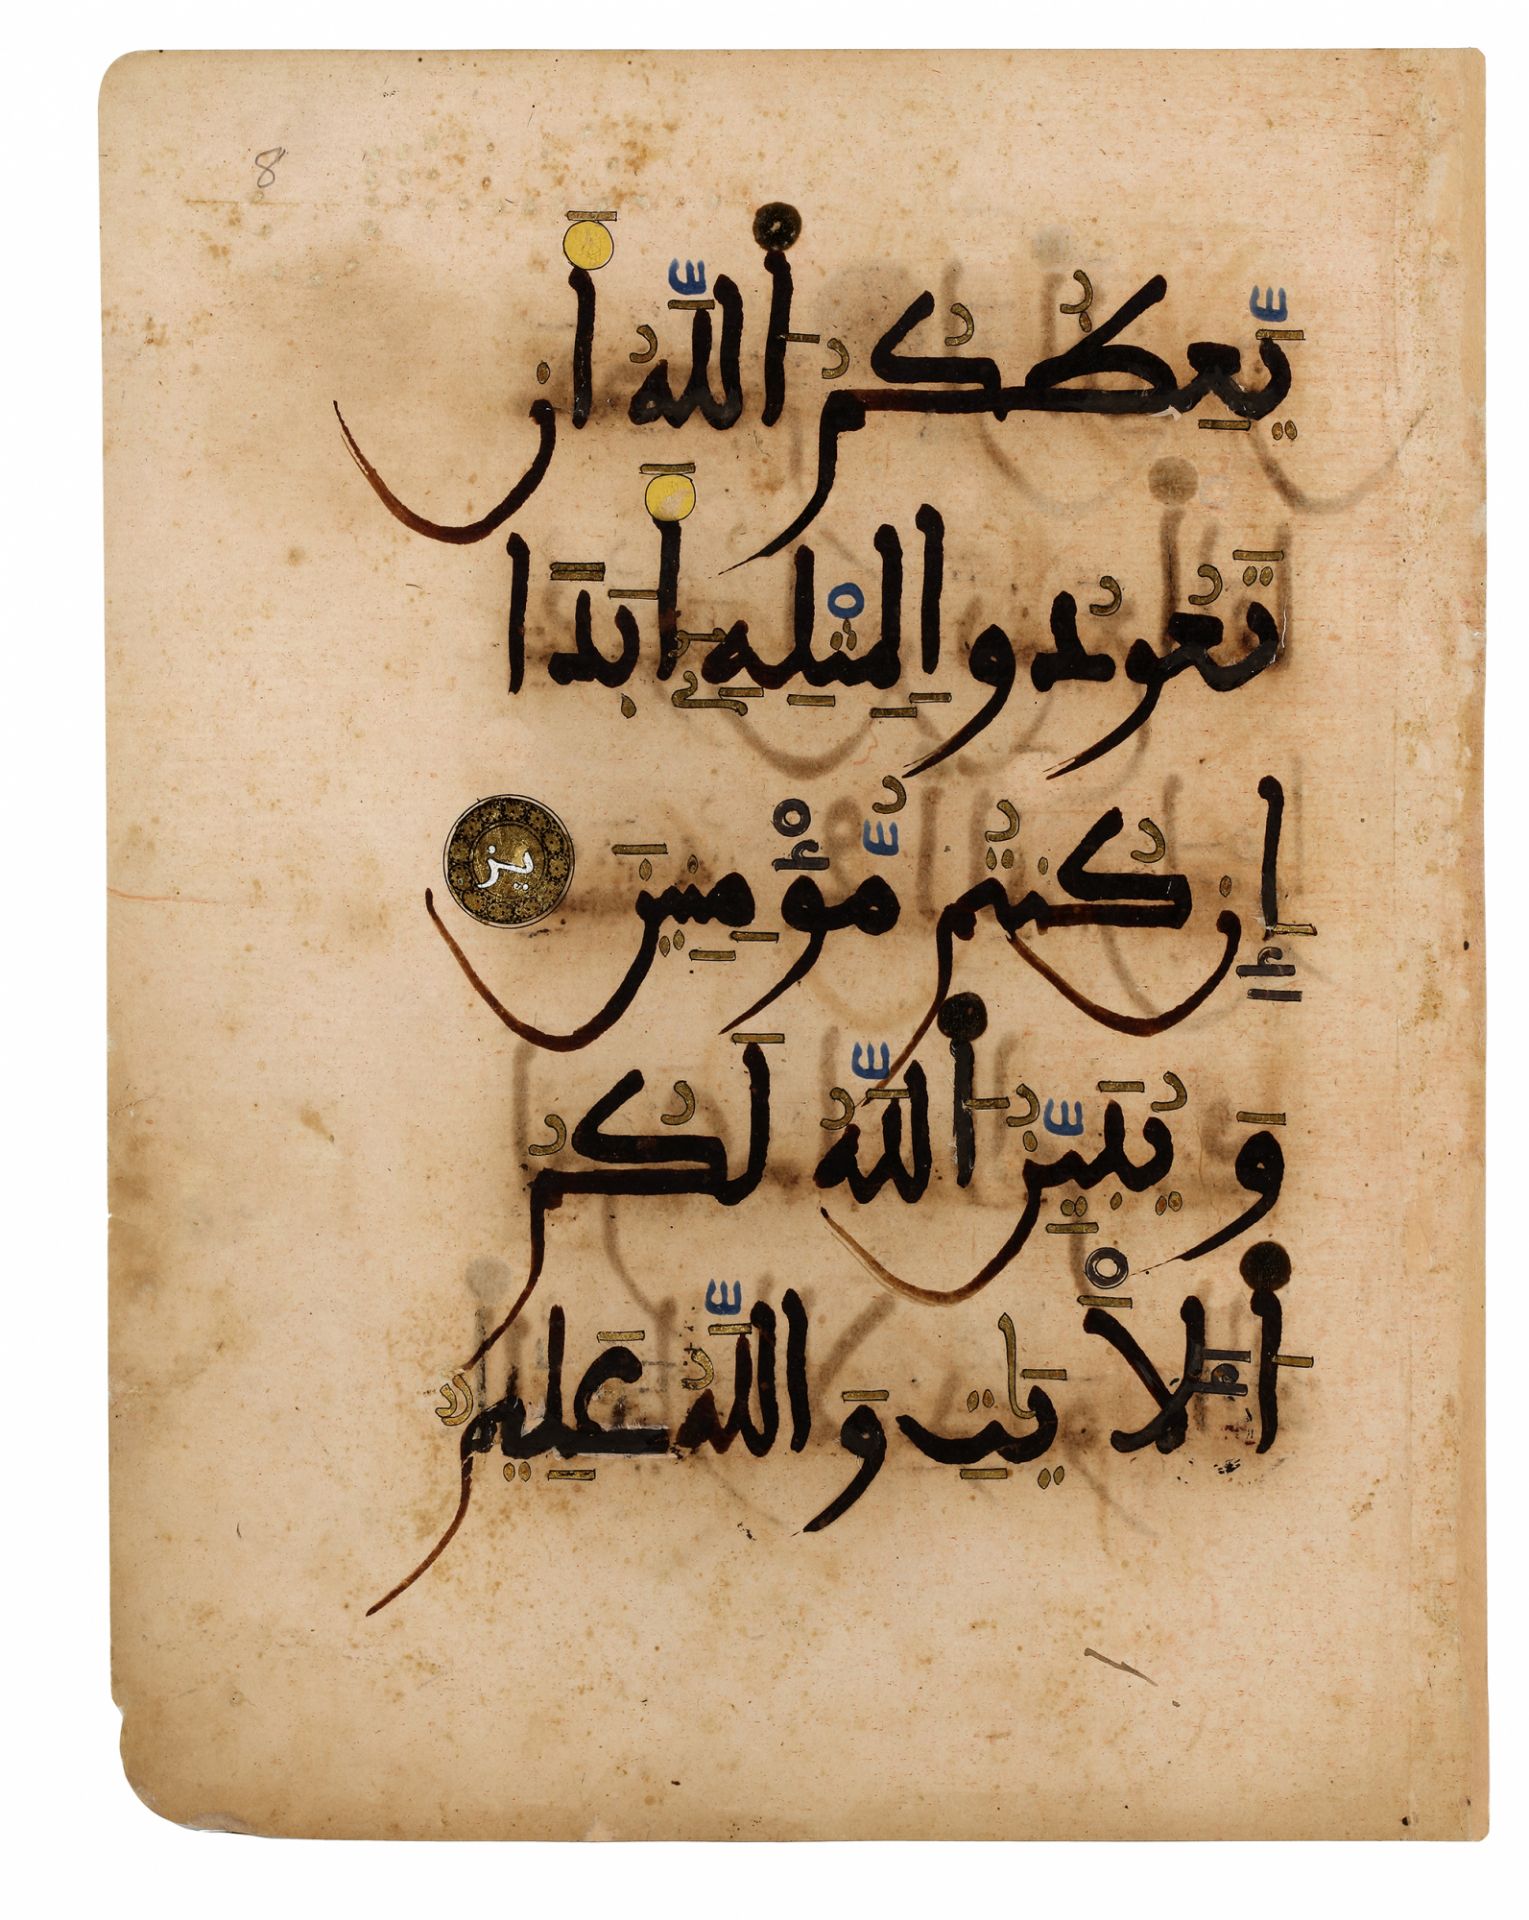 8
يَّعِظُكُمُ اَللَّهُ أَن
تَعُودُوا لِمِثْلِهِۦ أَبَدًا
إِن كُنتُمُ مُّؤْمِنِينَ يز
وَيُبَيِّنُ اَللَّهُ لَكُمُ
اَلْأَيَٰتِ وَاللَّهُ عَلِيمٌ